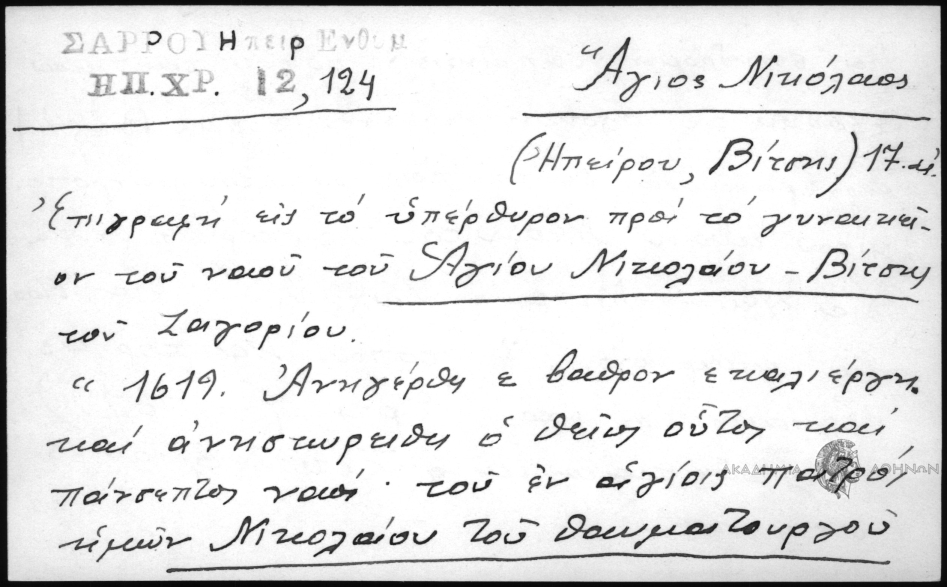 ΣΑΡΡΟΥ Ηπειρ Ενθυμ
ΗΠ. ΧΡ. 12, 124
Ἅγιος Νικόλαος
(Ἠπείρου, Βίτσης) 17. αἰ.
Ἐπιγραφή εἰς τό ὑπέρθυρον πρός τό γυναικεῖ-
ον τοῦ ναοῦ τοῦ Ἁγίου Νικολάου - Βίτσης
τοῦ Ζαγορίου.
"1619. Ἀνηγέρθη ε βαθρον ε καλιέργη.
καί ἀνηστωρειθη ὁ θεῖος οὗτος καί
πάνσεπτος ναός · τοῦ ἐν ἁγίοις πατρός
ἡμῶν Νικολάου τοῦ θαυματουργοῦ
ΑΚΑΔΗΜΙΑ ΑΘΗΝΩΝ